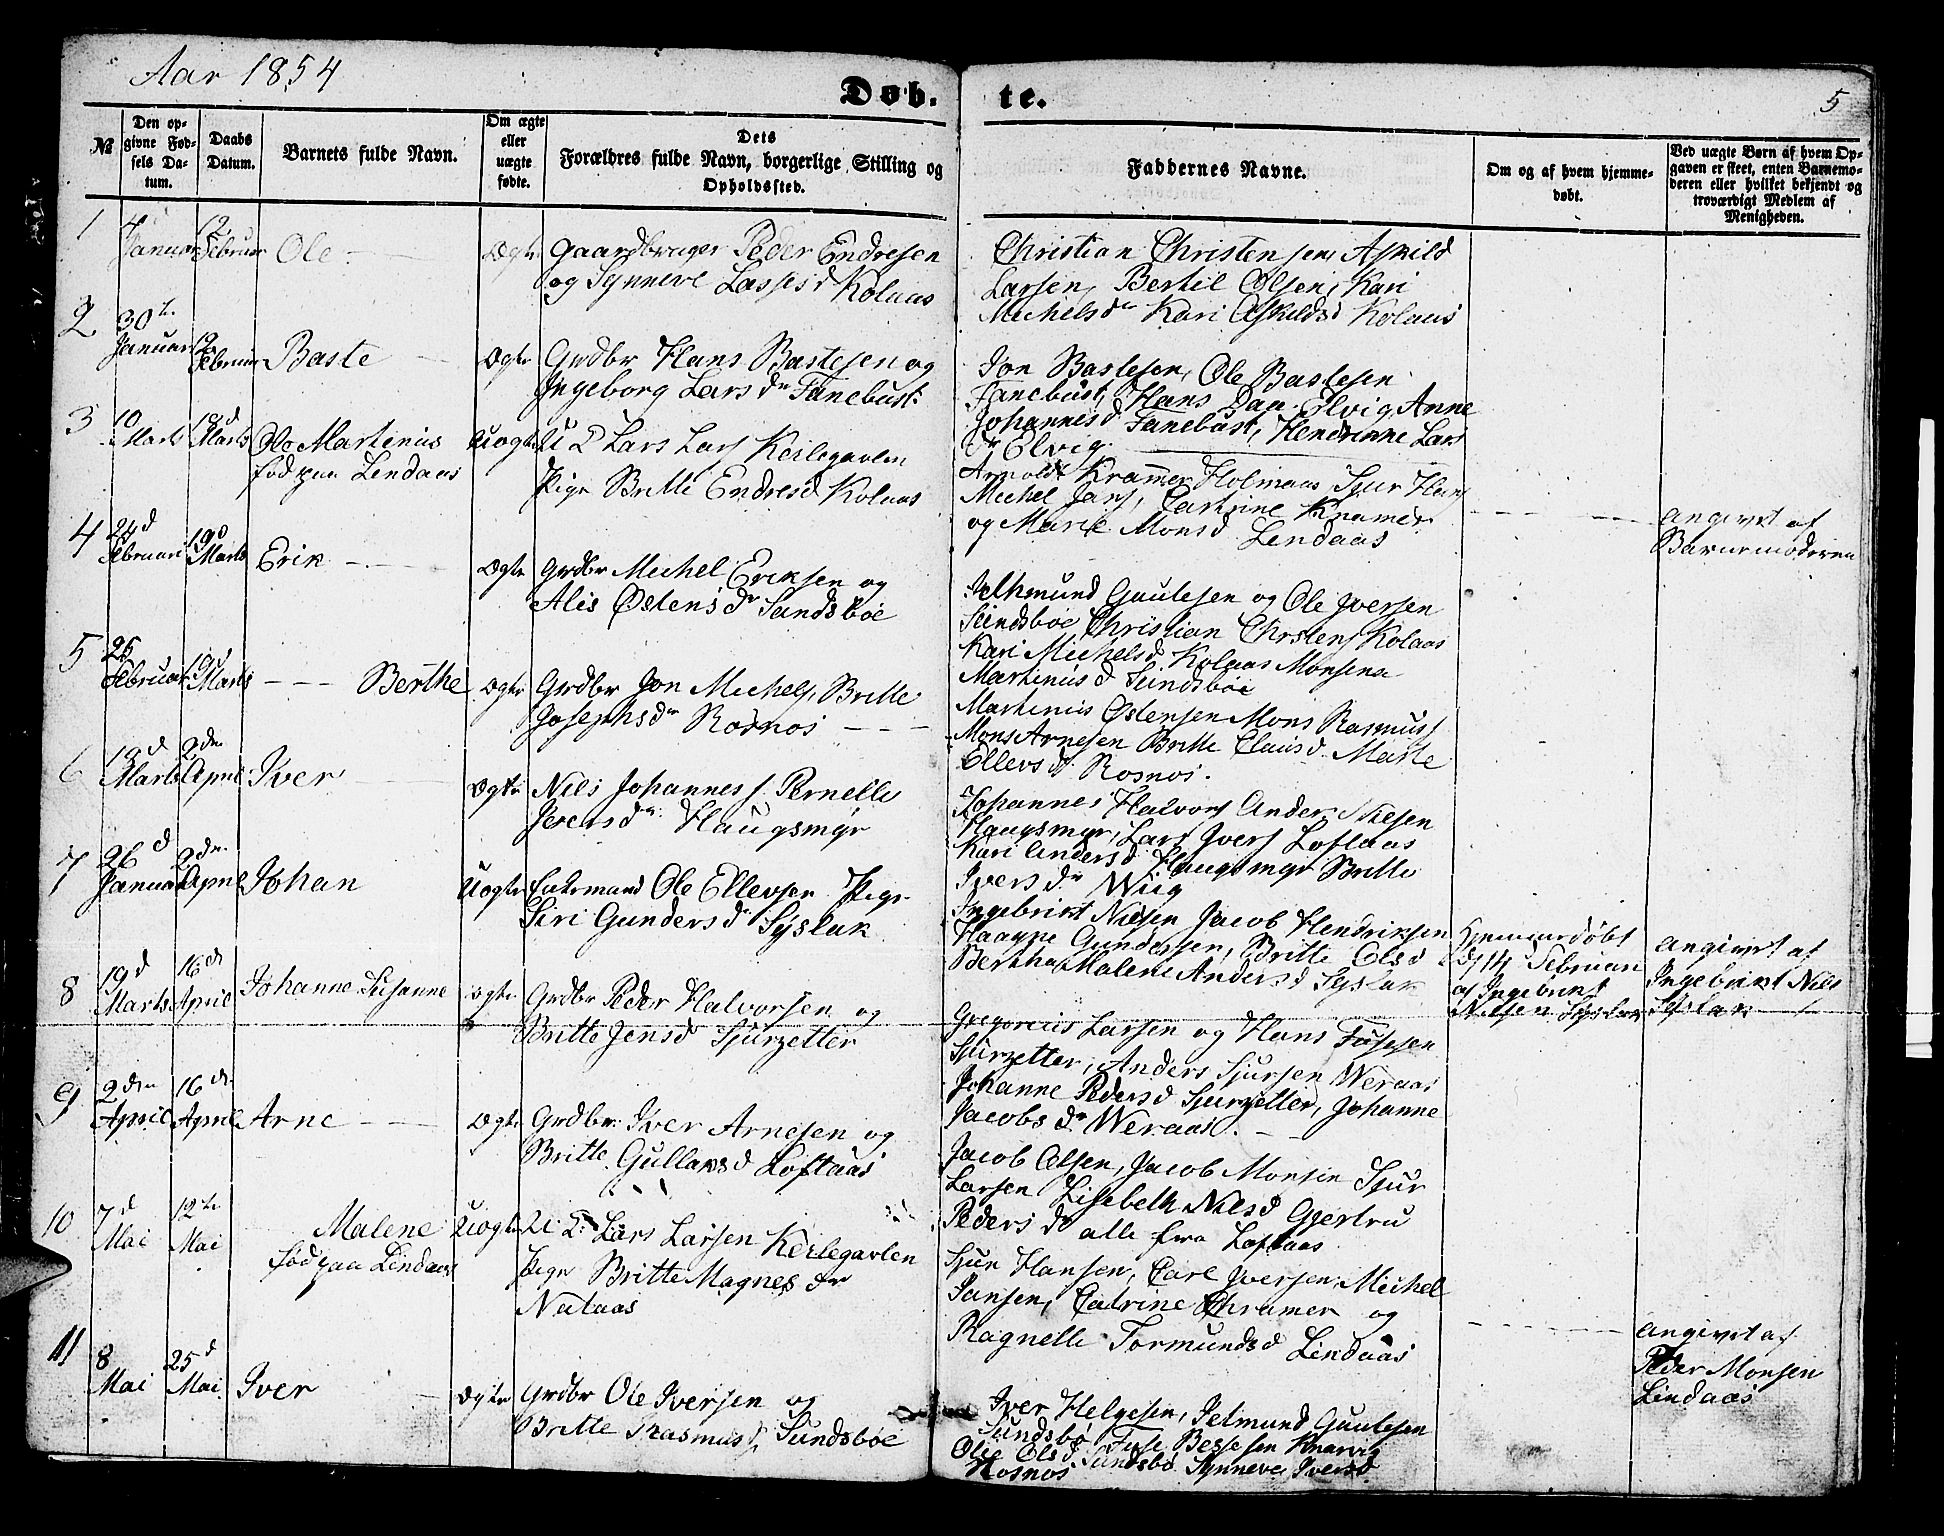 Aar 1854
Døb- te.
5
№
Den opgivne Fødsels Datum.
Daabs Datum.
Barnets fulde Navn.
Om ægte eller uægte fødte.
Dets Forældres fulde Navn, borgerlige Stilling og Opholdssted.
Faddernes Navne.
Om og af hvem hjemmedøbt.
Ved uægte Børn af hvem Opgaven er skeet, enten Barnemoderen eller hvilket bekjendt og troværdigt Medlem af Menigheden.
1
4 Januar
12 Februar
Ole
Ægte
Gaardbruger Peder Endresen
og Synneve Lassesd Kolaas
Christian Christensen, Askild
Larsen, Bertil Olsen, Kari
Michelsdr Kari Askildsd Kolaas
2
30te Januar
12 Februar
Baste
Ægte
Grdbr Hans Bastesen og
Ingeborg Larsdr Fanebust
Jon Bastesen, Ole Bastesen
Fanebust, Hans Daa. Elvig, Anne
Johannesd Fanebust, Hendrikke Lars
dr Elvig.
3
10 Marts
18d Marts
Ole Martinius
fød paa Lendaas
Uægte
U K Lars Lars Keilegavlen
Pige Britte Endresd Kolaas
Arnoldt Kramer Holmaas Sjur Hans
Michel Jans, Cathrine Kramer
og Marie Monsd Lendaas
angivet af
Barnemoderen
4
24d Februari
19d Marts
Erik
Ægte
Grdbr Michel Eriksen og
Alis Østensdr Sundsbøe
Jelhmund Guulesen og Ole Iversen
Sundsbøe, Christian Chrstens Kolaas
Kari Michelsd Kolaas Monsena
Martiniusd Sundsbøe
5
25 Februar
19d Marts
Berthe
Ægte
Grdbr Jon Michels, Britte
Josephsdr Rosnos
Martinius Østensen Mons Rasmuss
Mons Arnesen Britte Clausd. Marte
Ellersdr Rosnos.
6
19d Marts
2den April
Iver
Ægte
Nils Johanness. Pernelle
Jverensdr. Haugsmyr
Johannes Halvors Anders Nilsen
Haugsmyr, Lars Ivers Loftaas
Kari Andersd Haugsmyr Britte
Iversdr Wiig
7
26d Januar
2den April
Johan
Uægte
Ole Ellevsen Pige
Siri Gundersdr Syslak
Ingebrikt Nilsen Jacob Hendriksen
Haagne Gundersen, Britte Olsd
Bertha Malene Andersd Syslak
Hjemmedøbt
d. 14 Februar
af Ingebrikt
Nilsen Syslak
angivet af
Ingebrikt Nils
Syslak
8
19d Marts
16de April
Johanne Susanne
Ægte
Grdbr Peder Halvorsen og
Britte Jensd Sjurzetter
Gregorius Larsen og Hans Fusesen
Sjurzetter, Anders Sjursen Weraas
Johanne Pedersd Sjurzetter, Johanne
Jacobsdr Weraas.
9
2den April
16de April
Arne
Ægte
Grdbr. Iver Arnesen og
Britte Gullaksd Loftaas
Jacob Olsen, Jacob Monsen Sjur
Larsen Lisebeth Nilsd Gjertru
Pedersdr alle fra Loftaas
10
7d Mai
12te Mai
Malene
fød paa Lindaas
Uægte
U K: Lars Larsen Keilegavlen
Pige Britte Magnesdr
Nataas
Sjur Hansen, Carl Iversen, Michel
Jansen, Catrine Chramer og
Ragnelle Tormundsd Lindaas
angivet af
Peder Monsen
Lindaas
11
8 Mai
25d Mai
Iver
Ægte
Grdbr Ole Iversen og
Britte Rasmusd Sundsbøe
Iver Helgesen, Jelmund Guulesen
Sundsbø Fuse Bessesen Knarvig
Olie Olsd Sundsbø Synneve Iversd
Rosnos